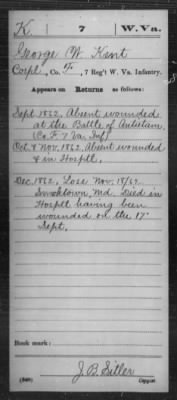 K. 7 W.Va.
George W. Kent
Corpl., Co. F, 7 Reg't W. Va. Infantry.
Appears on Returns as follows:
Sept. 1862. Absent wounded
at the Battle of Antietam
(Co. F 7 Va. Inf)
Oct. & Nov. 1862. Absent wounded
& in Hosptl.
Dec. 1862. Lose Nov. 18/62
Smoketown, Md. Died in
Hosptl having been
wounded on the 17"
Sept.
Book mark:
J. B. Sitler
(546) Copyist.